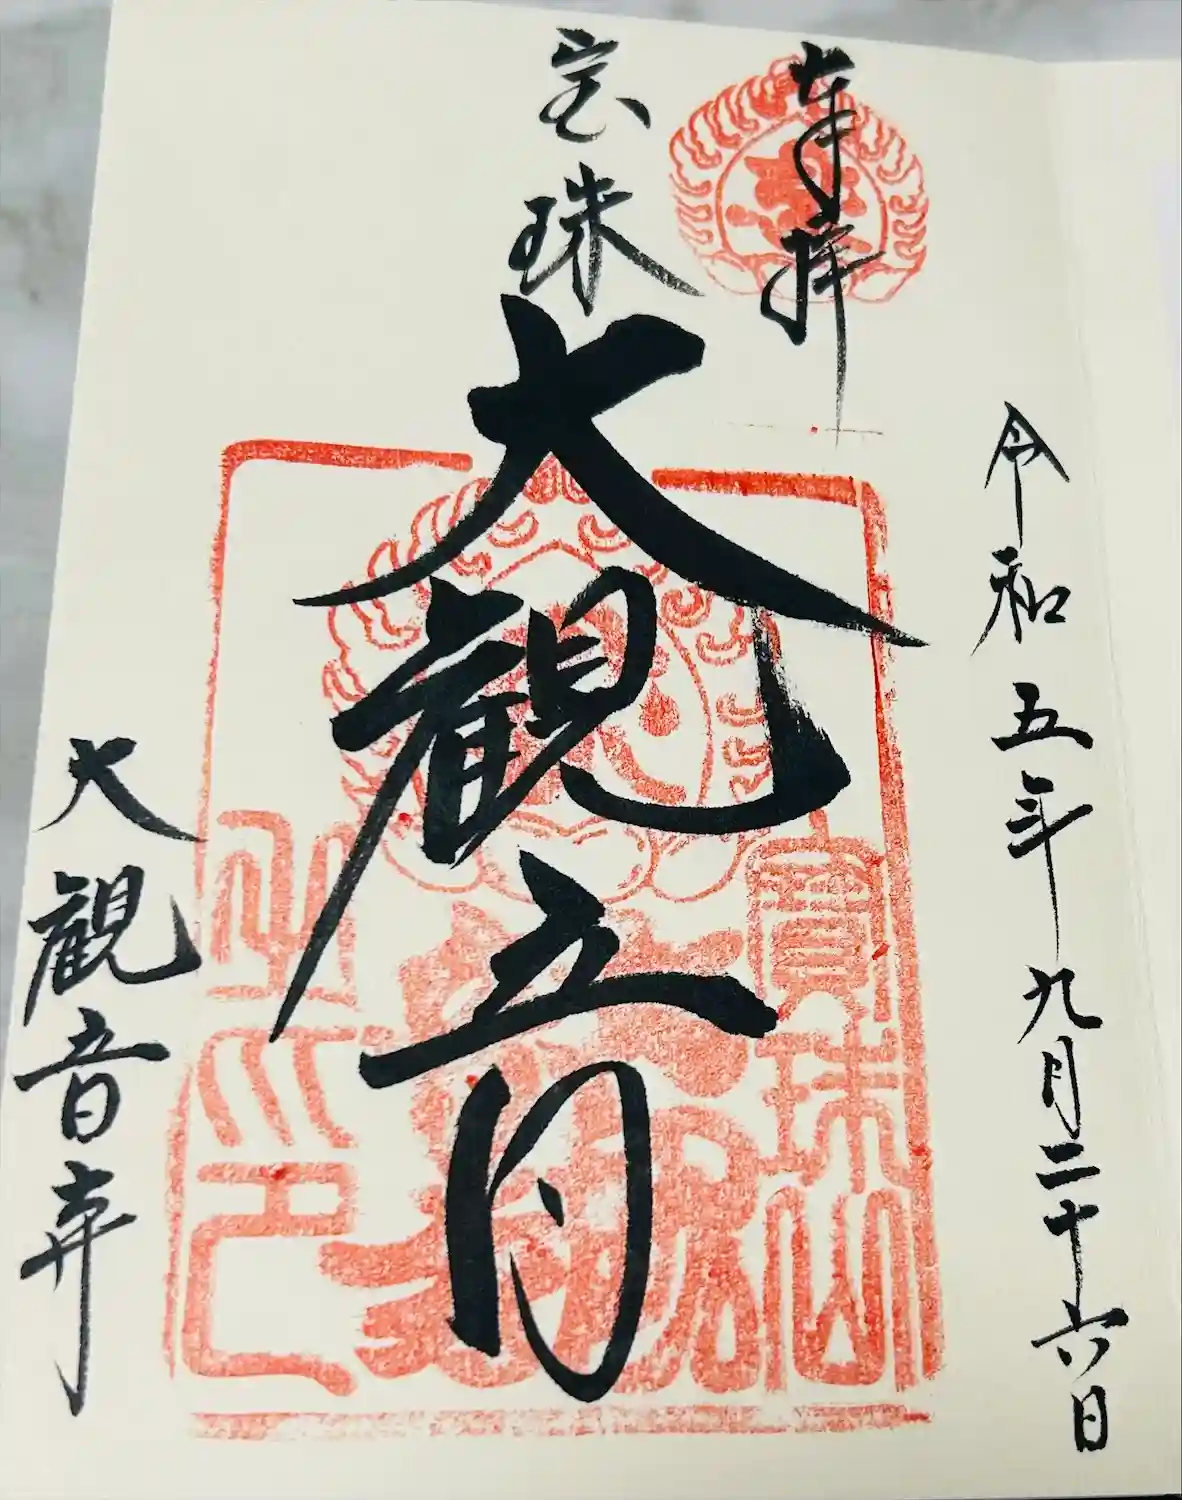 奉拝
令和五年九月二十六日
宝珠
大観音
大観音寺
寶珠山
之印